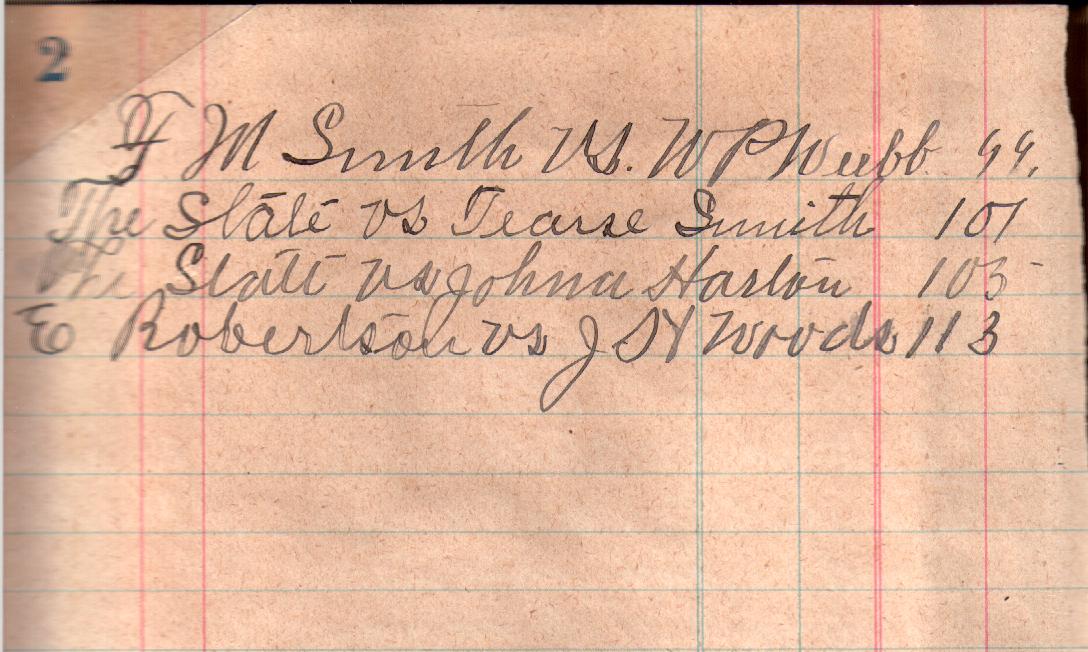 2
F M Smith vs. W P Webb 99.
The State vs Tearse Smith 101
The State vs Johna Harlon 105
E Robertson vs J H Woods 113